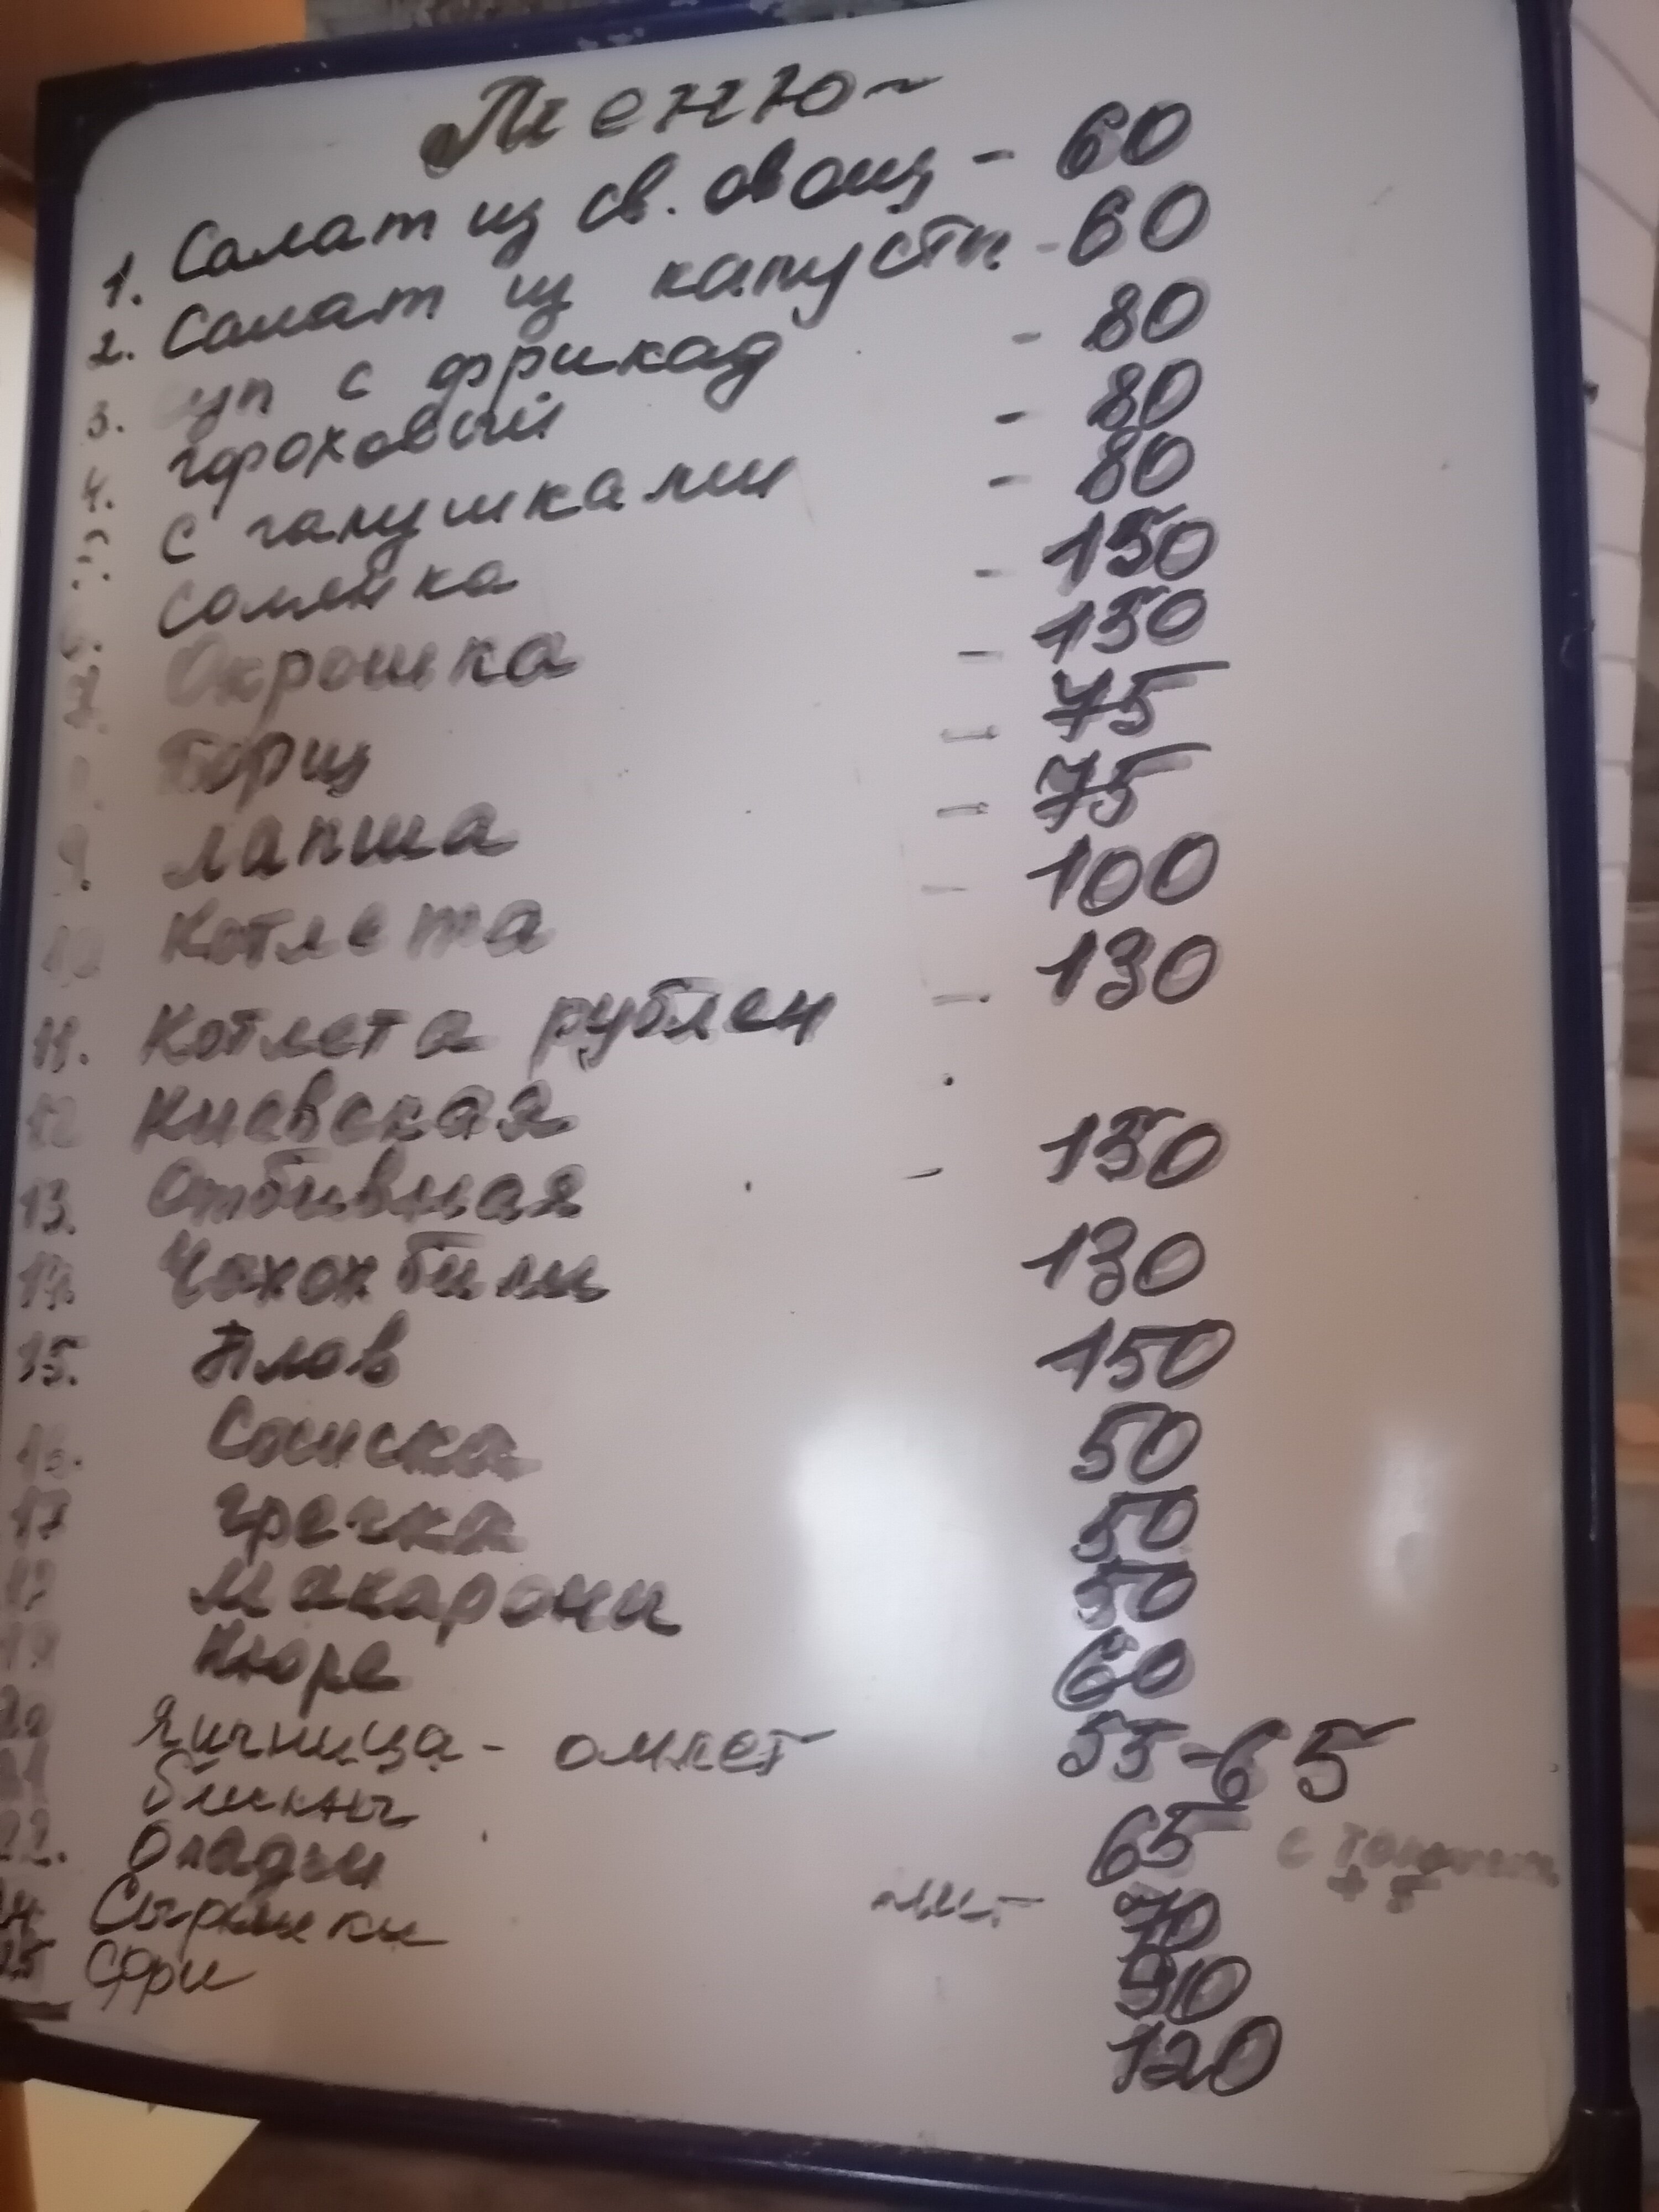 Меню
1. Салат из св. овощ - 60
2. Салат из капусты - 60
3. суп с фрикад - 80
4. гороховый - 80
5. с галушками - 80
6. Солянка - 150
7. Окрошка - 150
8. Борщ - 75
9. Лапша - 75
10 Котлета - 100
11. Котлета рублен - 130
12 Киевская
13. Отбивная - 150
14. Чахохбили 130
15. Плов 150
16. Сосиска 50
17 Гречка 50
18 Макарони 50
19 Пюре 60
20 Яичница - омлет 55-65
21 блины 65 с
22. Оладьи 70 + 5
24 Сырники 90
25 Фри 120